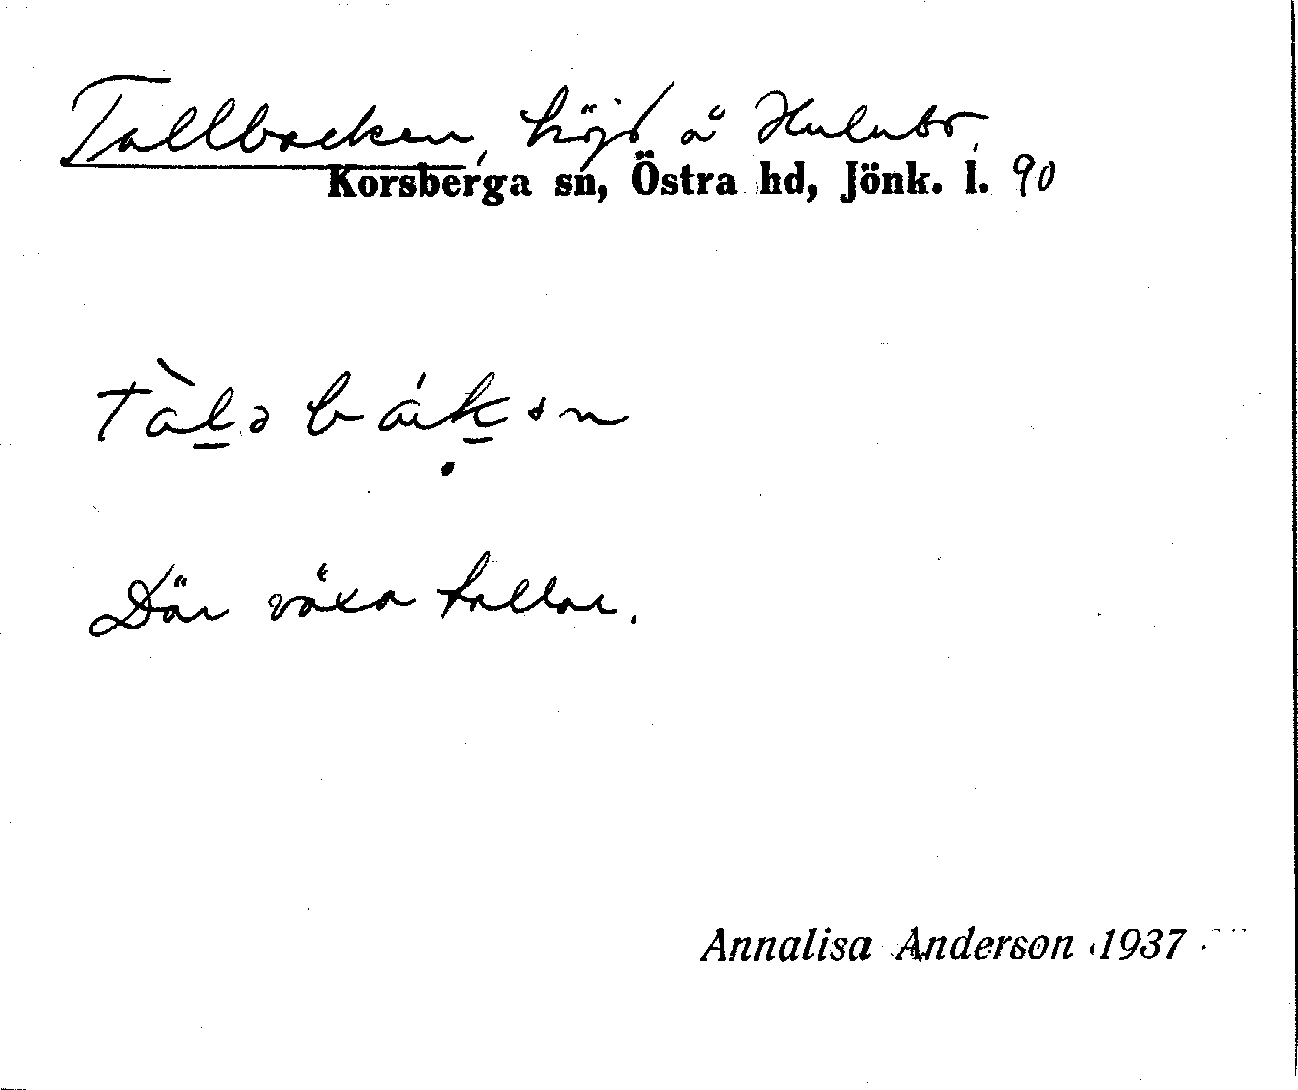 Tallbacken, höjd å Hulubo,
Korsberga sn, Östra hd, Jönk. l. 90
tàləbákən
Där växa tallar.
Annalisa Anderson 1937